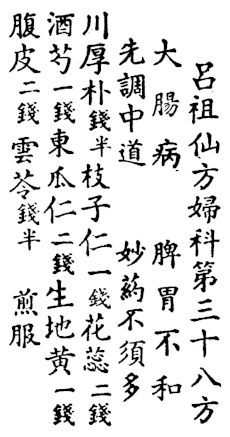 呂祖仙方婦科第三十八方
大腸病　脾胃不和
先調中道　妙葯不須多
川厚朴錢半枝子仁一錢花蕊二錢
酒芍一錢東瓜仁二錢生地黄一錢
腹皮二錢雲苓錢半　煎服